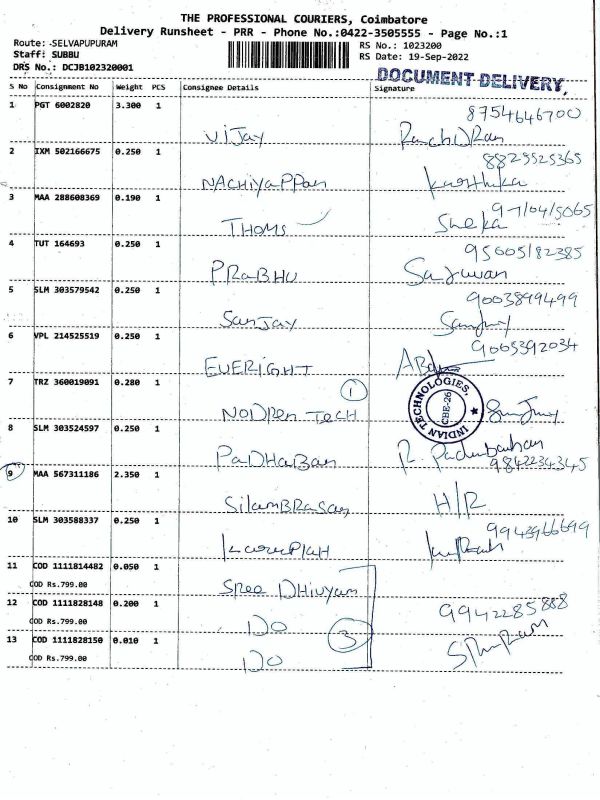 THE PROFESSIONAL COURIERS, Coimbatore
Delivery Runsheet - PRR - Phone No.:0422-3505555 - Page No.:1
Route: SELVAPUPURAM
Staff: SUBBU
DRS No.: DCJB102320001
RS No.: 1023200
RS Date: 19-Sep-2022
DOCUMENT DELIVERY,
S No Consignment No Weight PCS Consignee Details Signature
1 PGT 6002820 3.300 1
8754646700
Vijay
2 IXM 502166675 0.250 1
8825525365
NACHIYAPPan Karthika
3 MAA 288608369 0.190 1
THOMS Sneka
4 TUT 164693 0.250 1
PRaBHU
5 SLM 303579542 0.250 1
9003899499
Sanjay Sanjay
6 VPL 214525519 0.250 1
9003392034
EVERIGHT
7 TRZ 360019091 0.280 1
1
INDIAN TECHNOLOGIES,
CBE-26
8 SLM 303524597 0.250 1
PaDHaBan
9842234345
9 MAA 567311186 2.350 1
SilamBRasan H/R
10 SLM 303588337 0.250 1
11 COD 1111814482 0.050 1
COD Rs.799.00
SREE DHIVYam
12 COD 1111828148 0.200 1
COD Rs.799.00
DO
9942285888
3
13 COD 1111828150 0.010 1
COD Rs.799.00
DO